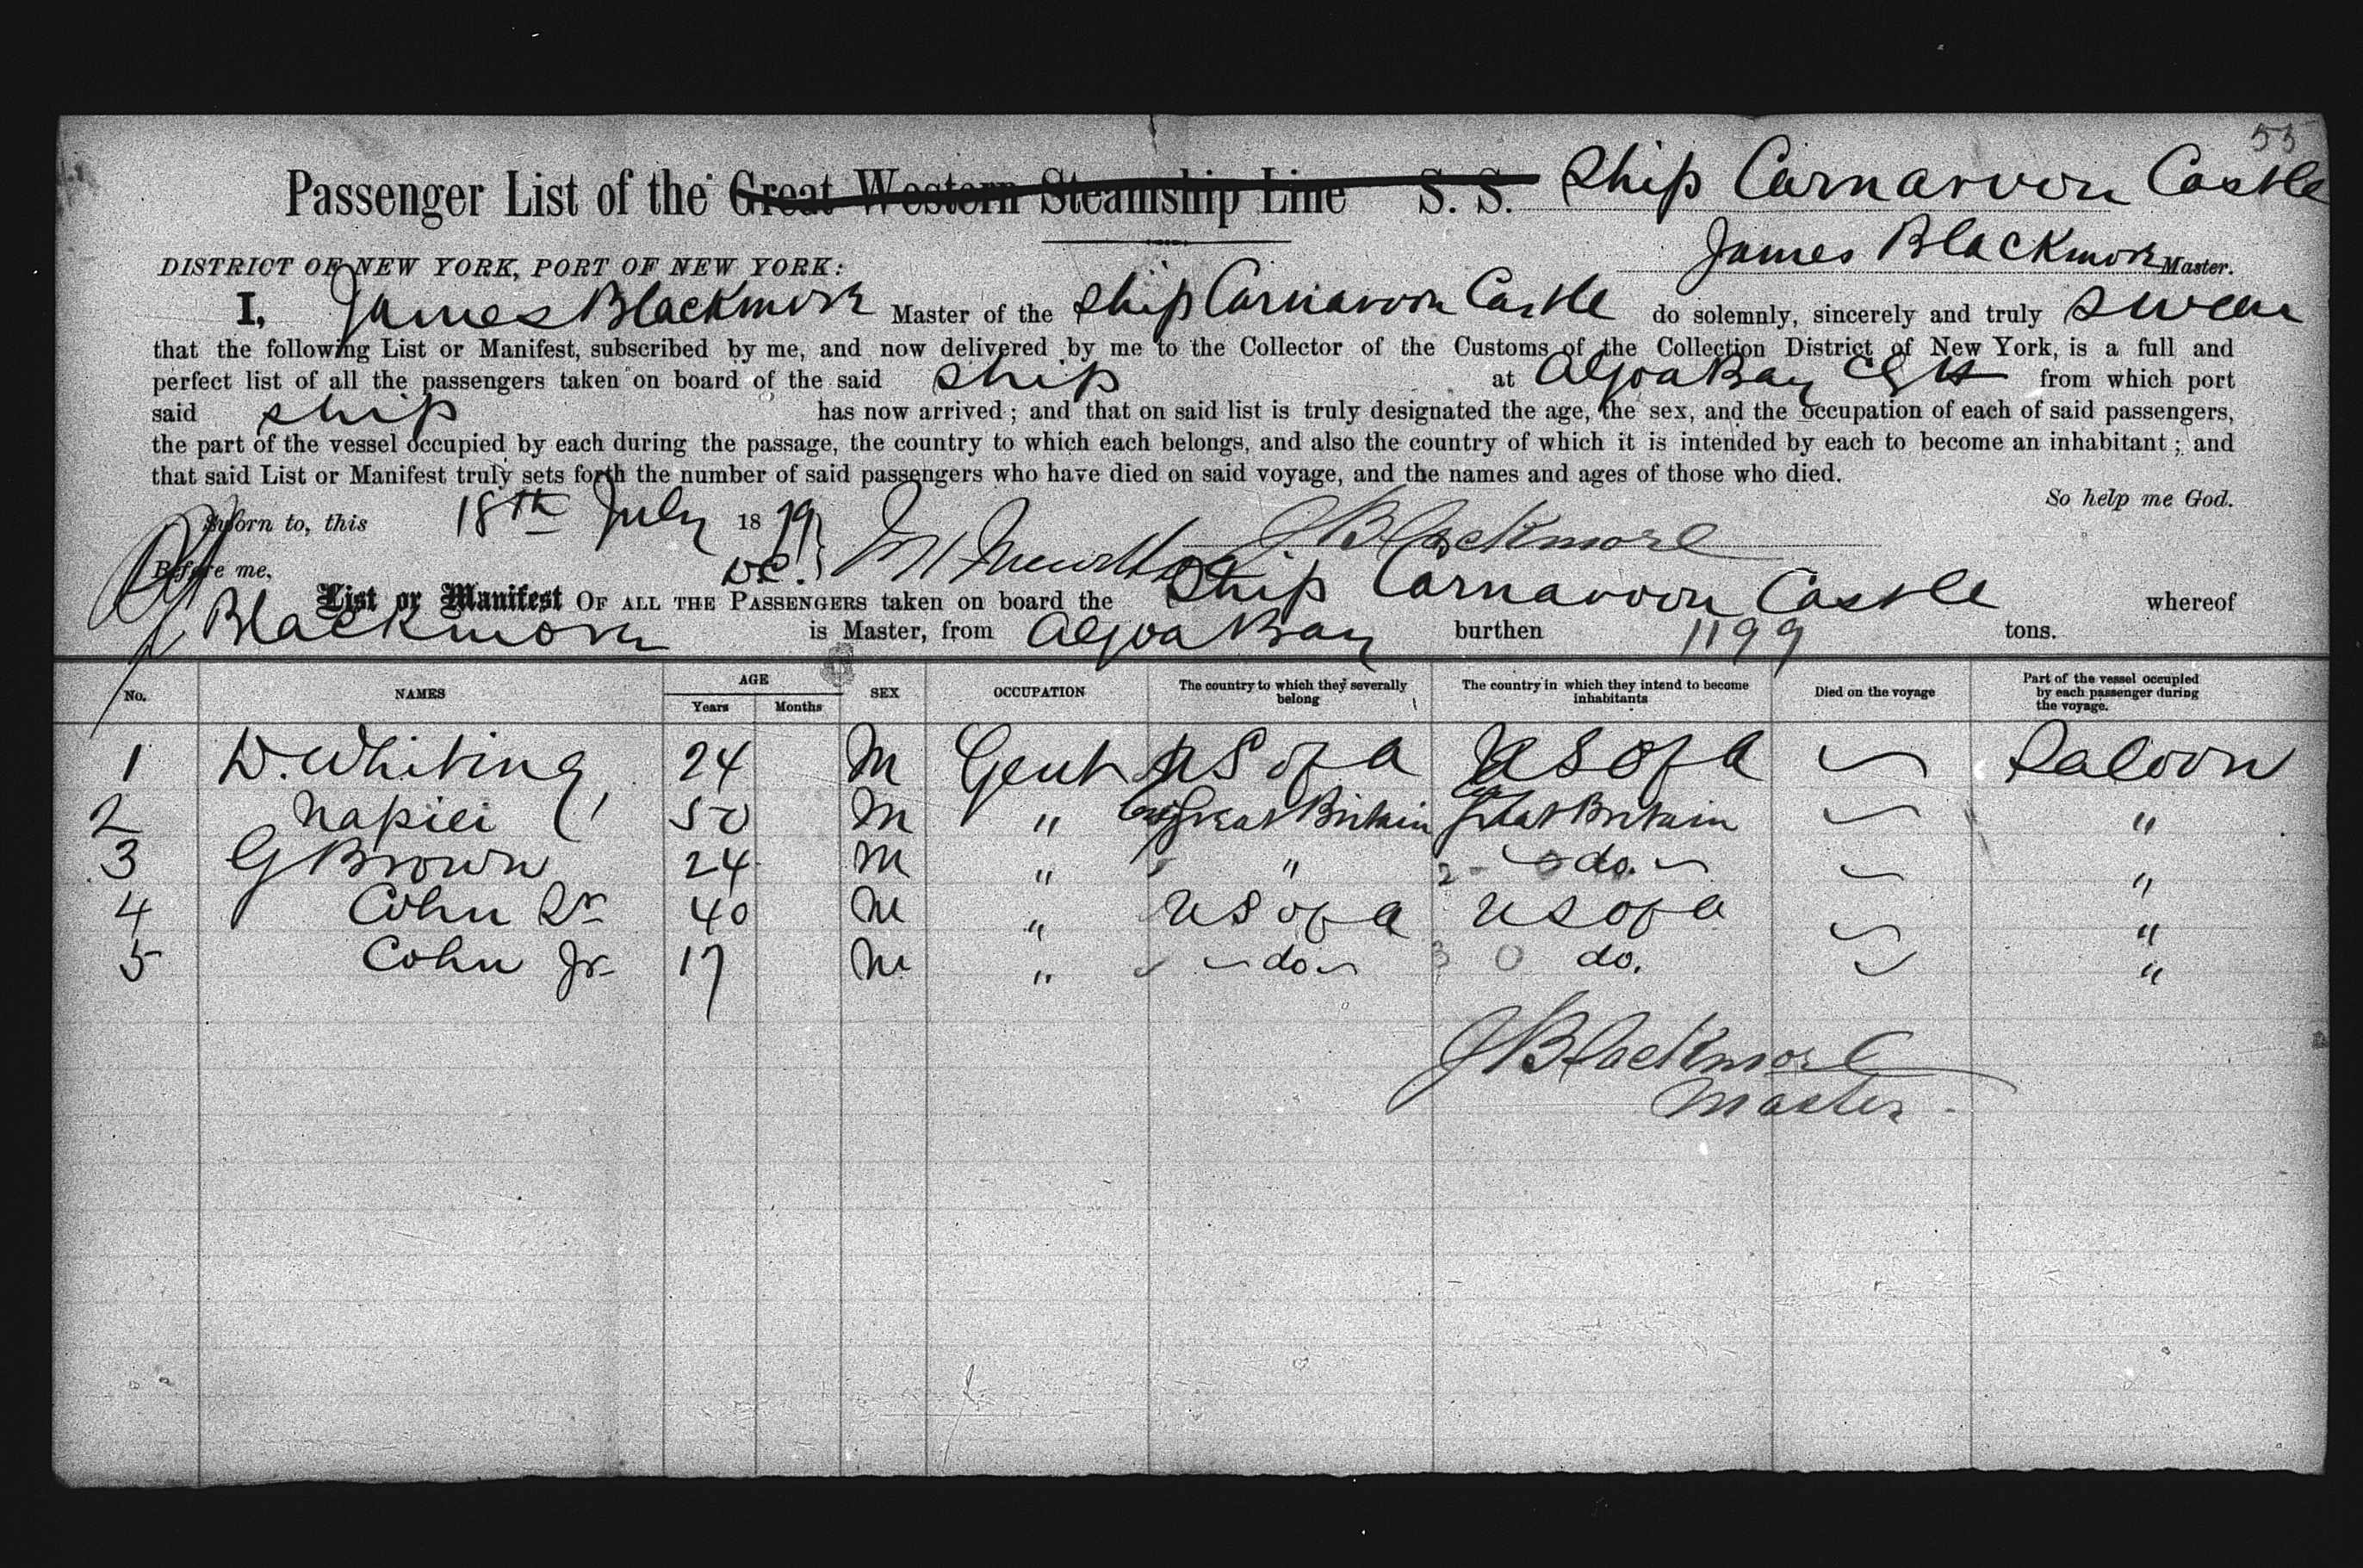 53
Passenger List of the Great Western Steamship Line S. S. Ship Carnarvon Castle
James Blackmore Master.
DISTRICT OF NEW YORK, PORT OF NEW YORK:
I, James Blackmore Master of the Ship Carnarvon Castle do solemnly, sincerely and truly swear
that the following List or Manifest, subscribed by me, and now delivered by me to the Collector of the Customs of the Collection District of New York, is a full and
perfect list of all the passengers taken on board of the said Ship at Algoa Bay CGH from which port
said ship has now arrived; and that on said list is truly designated the age, the sex, and the occupation of each of said passengers,
the part of the vessel occupied by each during the passage, the country to which each belongs, and also the country of which it is intended by each to become an inhabitant; and
that said List or Manifest truly sets forth the number of said passengers who have died on said voyage, and the names and ages of those who died.
So help me God.
Sworn to, this 18th July 1879
J Blackmore
Before me,
List or Manifest OF ALL THE PASSENGERS taken on board the Ship Carnarvon Castle whereof
Blackmore is Master, from Algoa Bay burthen 1199 tons.
No. NAMES AGE Years Months SEX OCCUPATION The country to which they severally belong The country in which they intend to become inhabitants Died on the voyage Part of the vessel occupied by each passenger during the voyage.
1 D. Whiting 24 M Gent U S of A U S of A Saloon
2 Napier 50 M " Great Britain Great Britain "
3 G Brown 24 M " " do. "
4 Cohn Sr 40 M " U S of A U S of A "
5 Cohn Jr 17 M " do do. "
J Blackmore
Master